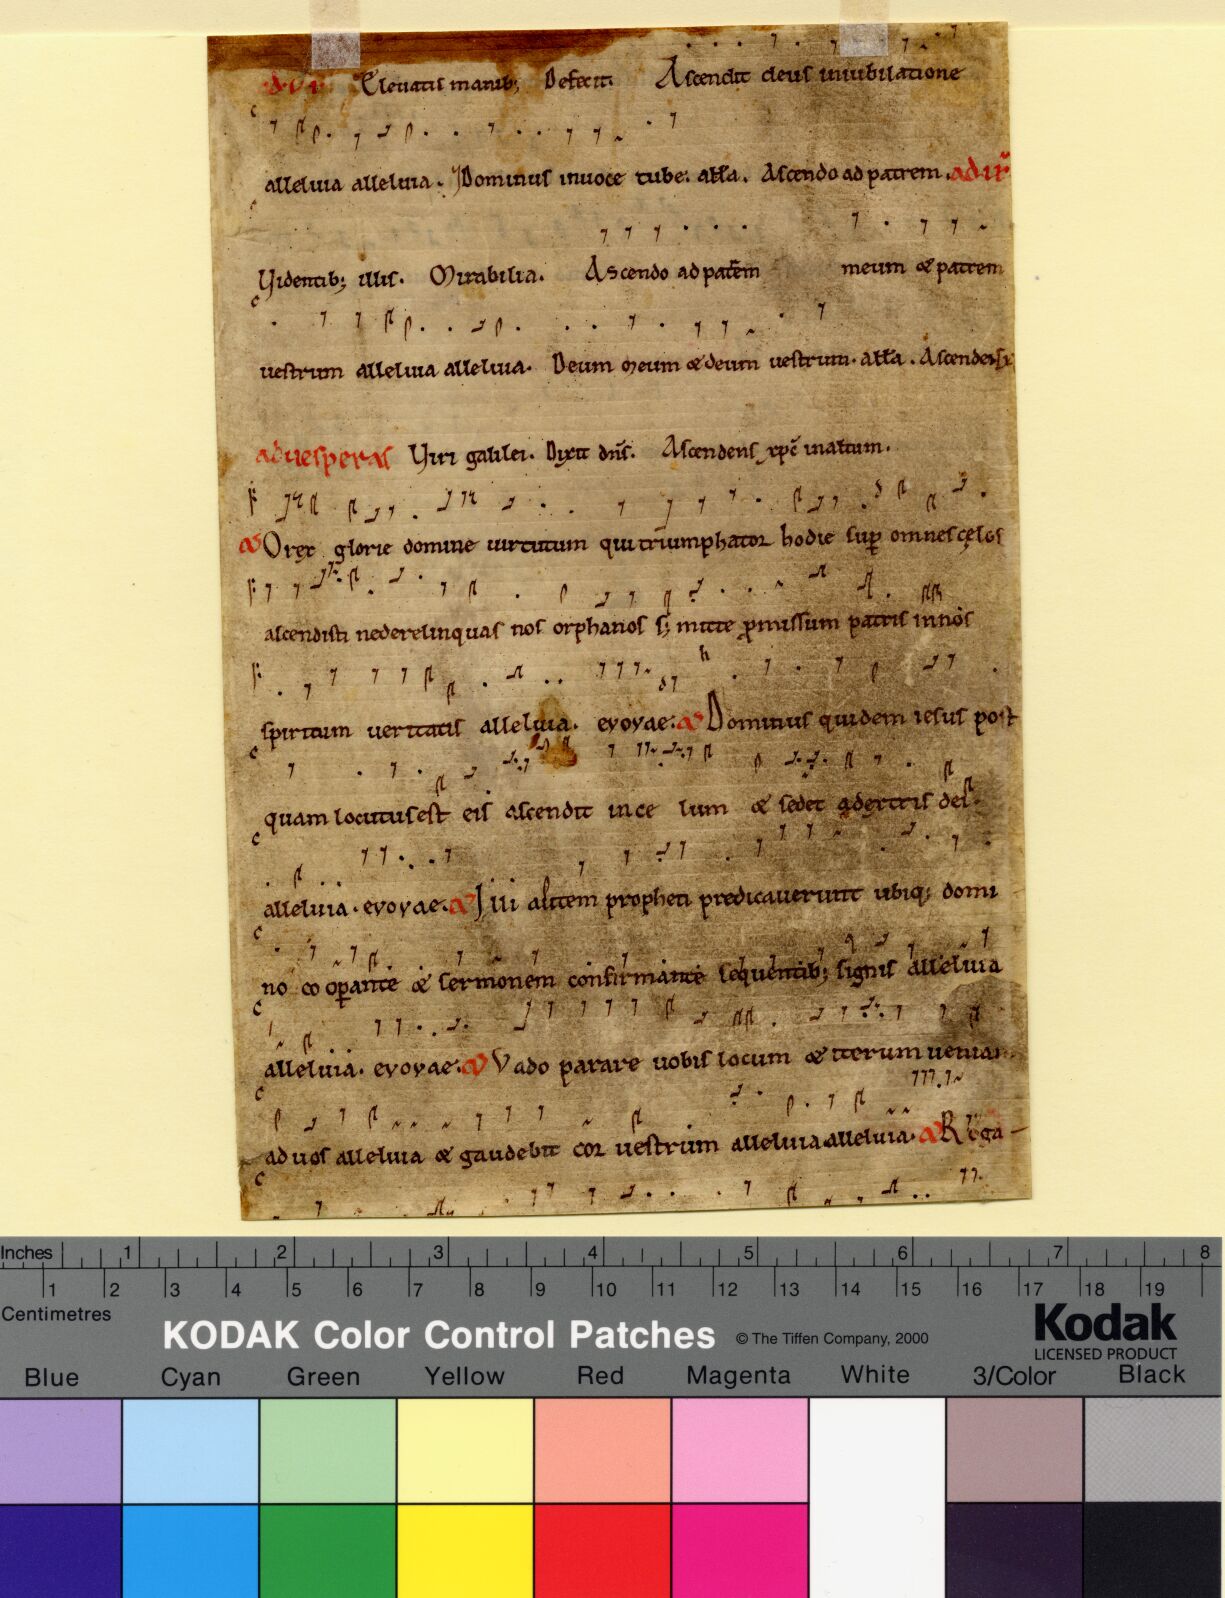 ad vi Eleuatis manib; Defecit. Ascendit deus iniubilatione
alleluia alleluia. Dominus inuoce tube. alła. Ascendo ad patrem. ad
Videntib; illis. Mirabilia. Ascendo ad patrē meum & patrem
uestrum alleluia alleluia. Deum meum & deum uestrum. alła. Ascendens
aduesperas Viri galilei. Dixit dn̄s. Ascendens xpc̄ inaltum.
O rex glorie domine uirtutum qui triumphator hodie sup omnes cęlos
ascendisti nederelinquas nos orphanos s; mitte pmissum patris innos
spiritum ueritatis alleluia. evovae: Dominus quidem iesus post
quam locutus est eis ascendit ince lum & sedet adextris dei.
alleluia. evovae. Illi autem profecti predicauerunt ubiq; domi
no cooperante & sermonem confirmante sequentib; signis alleluia
alleluia. evovae: Vado parare uobis locum & iterum ueniam
ad uos alleluia & gaudebit cor uestrum alleluia alleluia. Roga
Inches 1 2 3 4 5 6 7 8
1 2 3 4 5 6 7 8 9 10 11 12 13 14 15 16 17 18 19
Centimetres
KODAK Color Control Patches © The Tiffen Company, 2000 Kodak
LICENSED PRODUCT
Blue Cyan Green Yellow Red Magenta White 3/Color Black